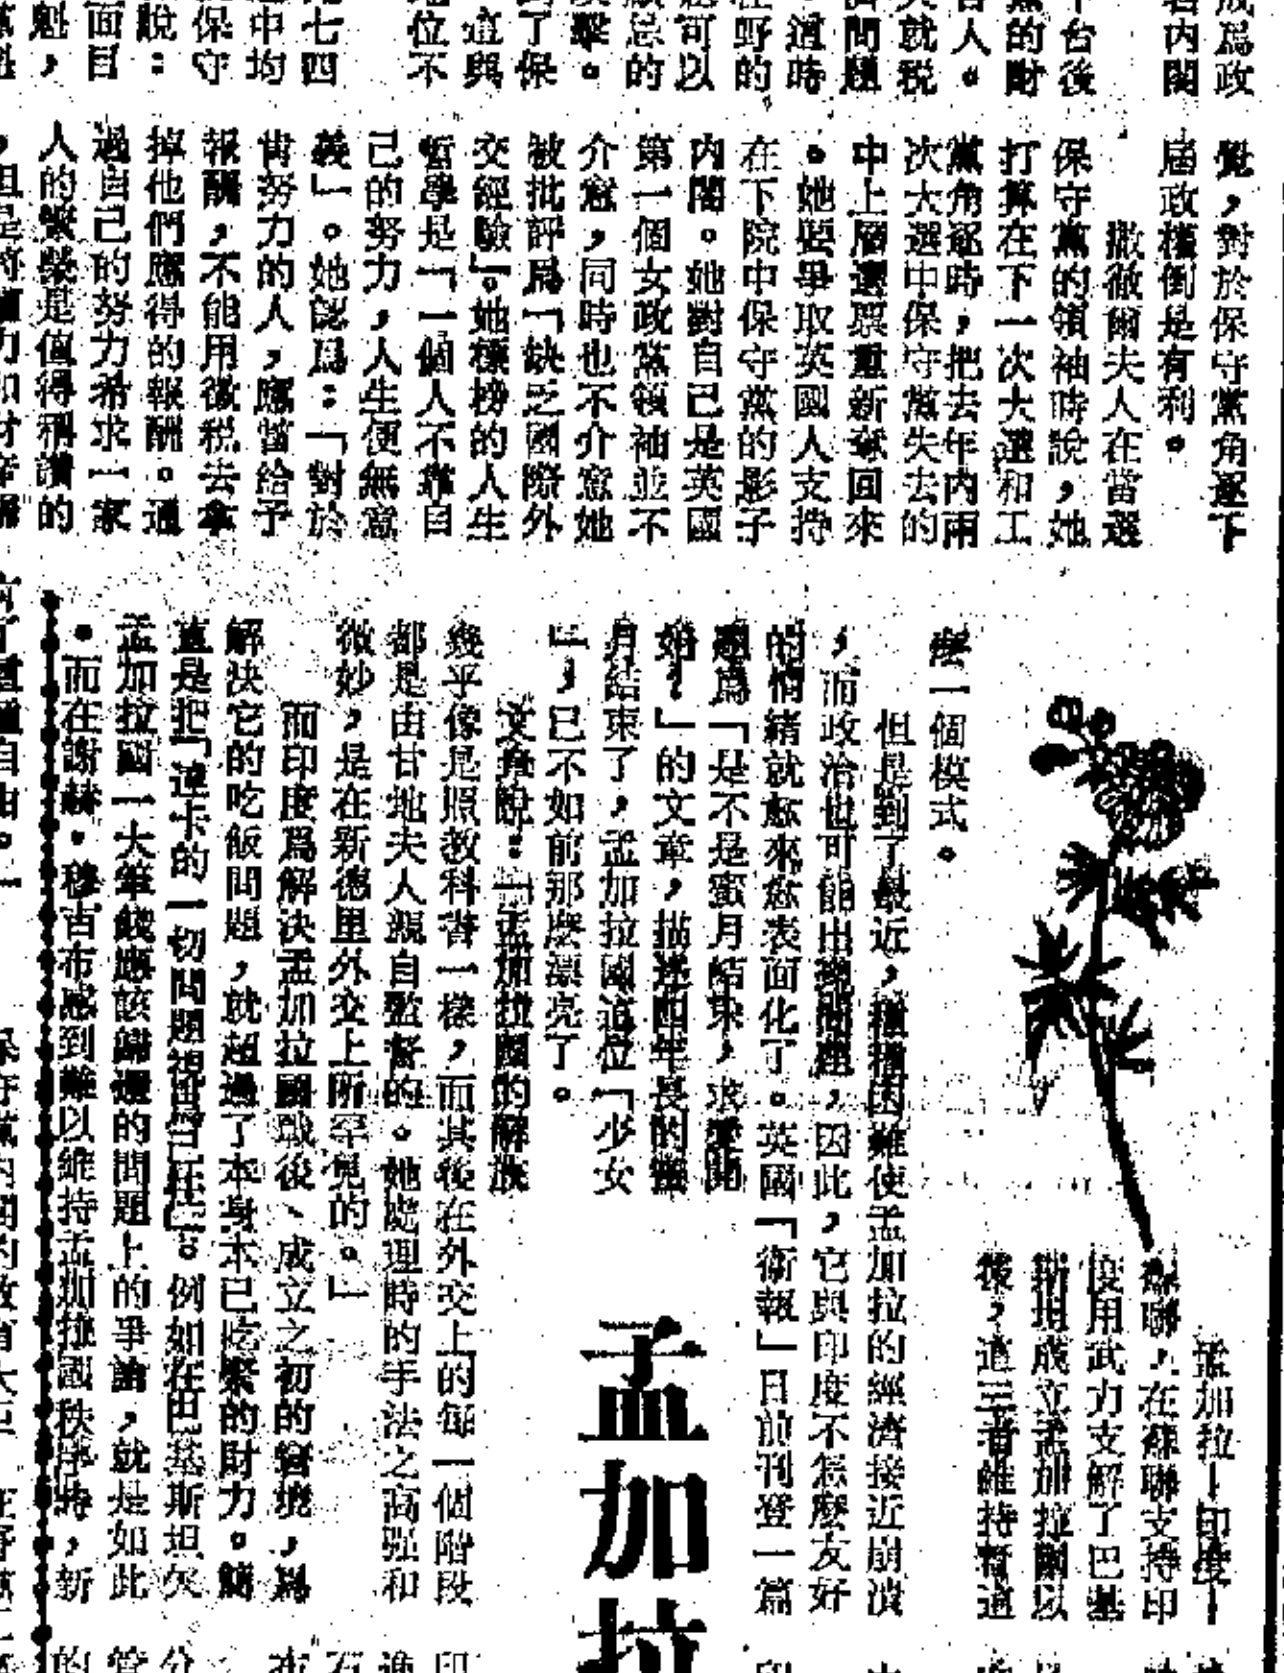 成爲政
名內閣
下台後
黨的財
人。
夫就税
問題
。這時
在野的
可以
忌的
擊。
了保
直與
位不
七四
中均
保守
說：
面目
魁，
覺，對於保守黨角逐下
屆政權倒是有利。
撒徹爾夫人在當選
保守黨的領袖時說，她
打算在下一次大選和工
黨角逐時，把去年內兩
次大選中保守黨失去的
中上層選票重新奪回來
。她要爭取英國人支持
在下院中保守黨的影子
內閣。她對自己是英國
第一個女政黨領袖並不
介意，同時也不介意她
被批評爲「缺乏國際外
交經驗」。她標榜的人生
哲學是「一個人不靠自
己的努力，人生便無意
義」。她認爲：「對於
肯努力的人，應當給予
報酬，不能用徵税去拿
掉他們應得的報酬。通
過自己的努力希求一家
人的繁榮是值得稱讚的
孟加拉—印度—
蘇聯，在蘇聯支持印
度用武力支解了巴基
斯坦成立孟加拉國以
後，這三者維持着這
麼一個模式。
但是到了最近，種種困難使孟加拉的經濟接近崩潰
，而政治也可能出現問題，因此，它與印度不怎麼友好
的情緒就愈來愈表面化了。英國「衛報」日前刊登一篇
題爲「是不是蜜月結束，求愛開
始？」的文章，描述四年長的蜜
月結束了，孟加拉國這位「少女
」，已不如前那麼漂亮了。
文章說：「孟加拉國的解放
幾乎像是照教科書一樣，而其後在外交上的每一個階段
都是由甘地夫人親自監督的。她處理時的手法之高强和
微妙，是在新德里外交上所罕見的。」
而印度爲解決孟加拉國戰後、成立之初的窘境，爲
解決它的吃飯問題，就超過了本身本已吃緊的財力。簡
直是把「達卡的一切問題視爲己任」。例如在巴基斯坦欠
孟加拉國一大筆錢應該歸還的問題上的爭論，就是如此
。而在謝赫・穆吉布感到難以維持孟加拉國秩序時，新
孟加拉